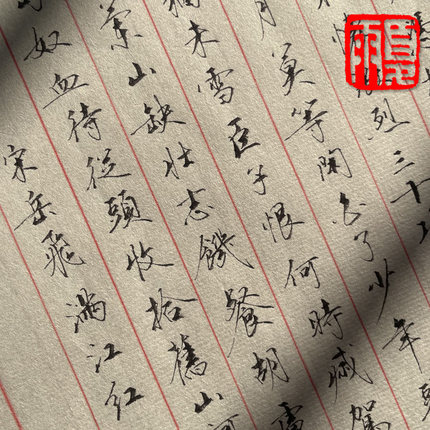 烈三十功
月莫等閒白了少年頭
未雪臣子恨何時滅駕
蘭山缺壮志饑餐胡虜
奴血待從頭收拾舊山河
宋岳飛滿江紅